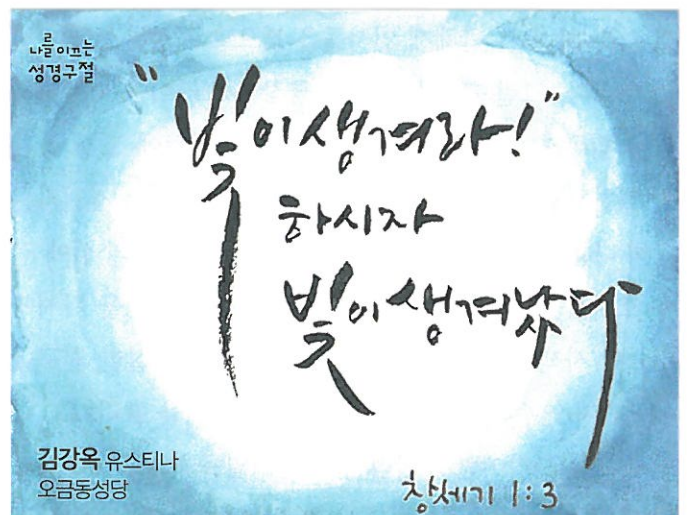 나를 이끄는
성경구절
"빛이 생겨라!"
하시자
빛이 생겨났다
김강옥 유스티나
오금동성당
창세기 1:3